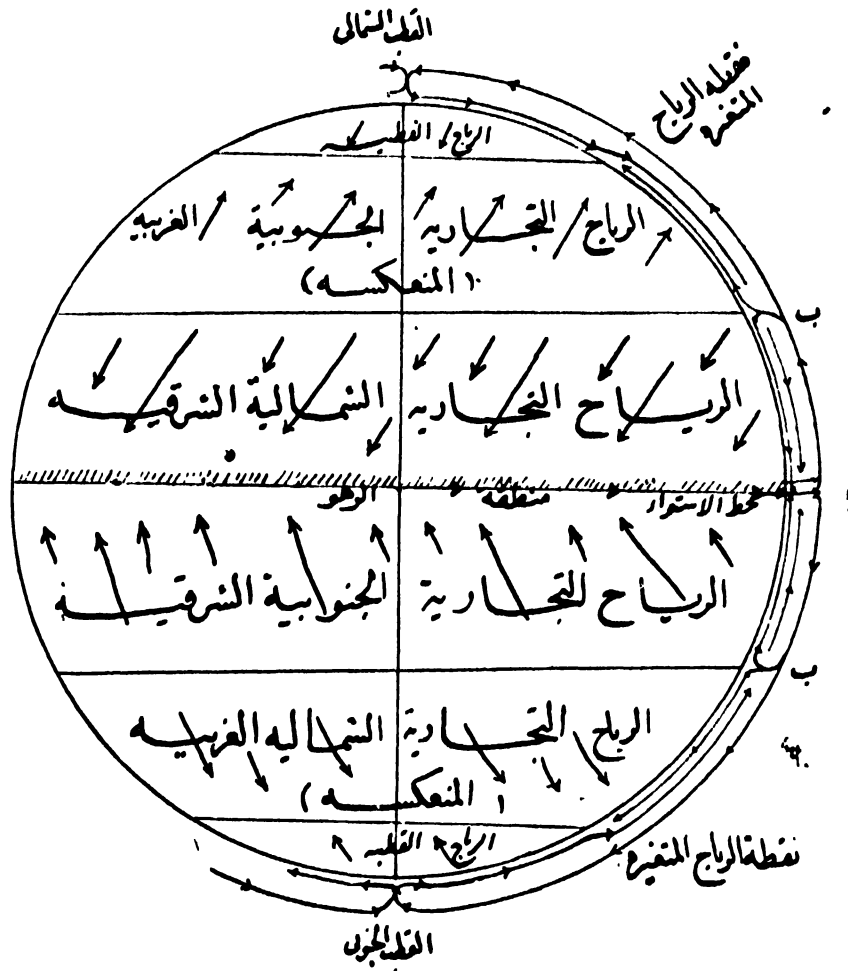 القطب الشمالى
نقطة الرياح
المتغيره
الرياح القطبيه
الرياح التجاريه الجنوبية الغربيه
(المنعكسه)
ب
الرياح التجاريه الشمالية الشرقيه
خط الاستواء منطقه الرهو
الرياح التجارية الجنوبية الشرقيه
ب
الرياح التجارية الشماليه الغربيه
(المنعكسه)
الرياح القطبيه
نقطة الرياح المتغيره
القطب الجنوبى